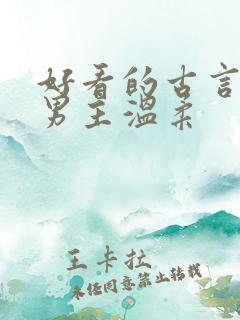 好看的古言
男主温柔
王卡拉
未经同意禁止转载